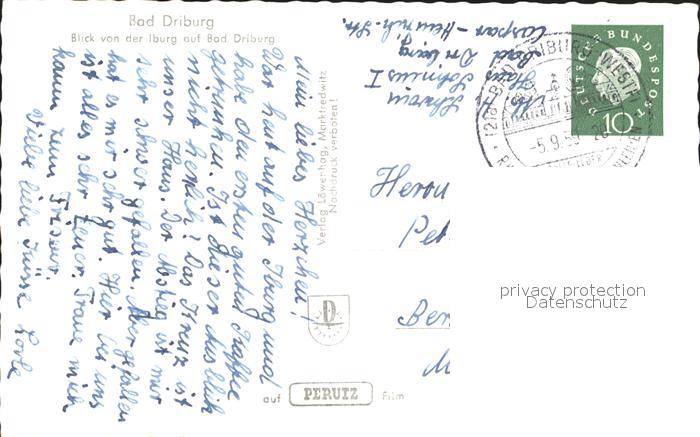 Bad Driburg
Blick von der Iburg auf Bad Driburg
Mein liebes Herzchen!
War heut auf der Iburg und
habe den ersten guten Kaffee
getrunken. Ist dieser Ausblick
nicht herrlich! Das Kreuz ist
unser Haus. Der Abstieg ist mir
sehr schwer gefallen. Aber gefallen
tut es mir sehr gut. Hier bei uns
ist alles sehr teuer. Traue mich
kaum zum Friseur.
Viele liebe Küsse
Verlag Löwenhag, Marktredwitz
Nachdruck verboten!
Haus
Bad Driburg
Caspar-Heinrich-Str.
DEUTSCHE BUNDESPOST
10
BAD DRIBURG (WESTF)
-5.9.59
Herrn
Pet
Ber
D
auf PERUTZ Film
privacy protection
Datenschutz